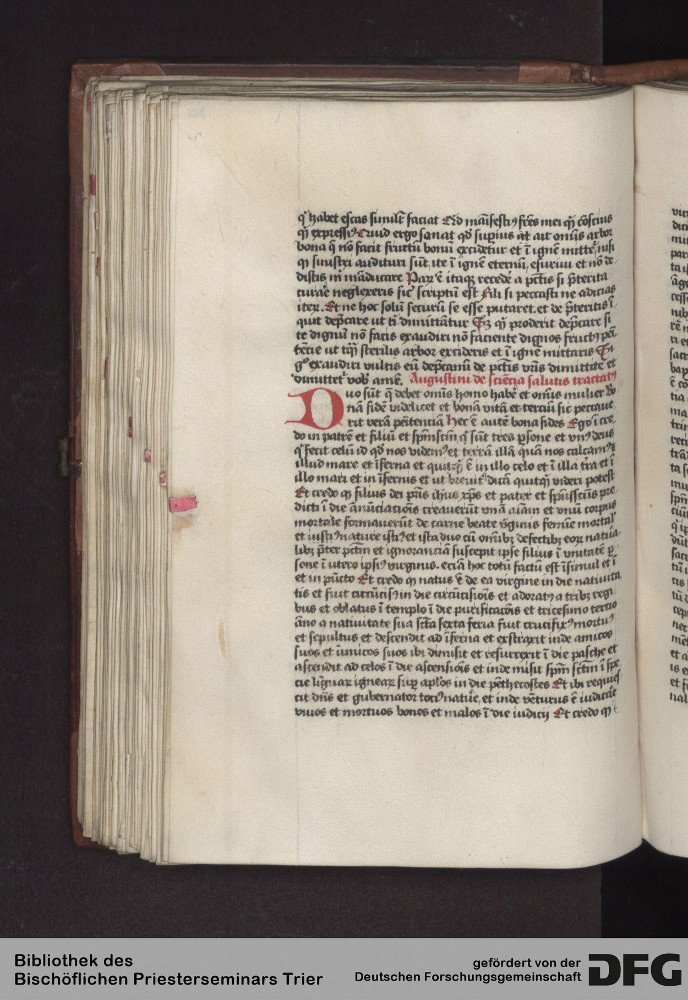 q̇ habet escas similr̄ faciat Ad mãifesti⁹ frēs mei qꝫ cõscius
qꝫ expressi⁹ Quid ergo sanat qd̄ supius ait aut omīs arbor
bona q̄ nō facit fructū bonū excidetur et ī ignē mittet̄ nisi
qꝫ sinistri audituri sūt, ite ī ignē eternū, esuriui et nō de
distis m̄ māducare Par̄ ē itaqꝫ recede a pctīs si p̄terita
curar̄ neglexeris sic̄ scriptū est Fili si peccasti ne adicias
iter̄. Et ne hoc solū securū se esse putaret, et de p̄teritis ī
quit dep̄care ut ti dimittātur Sꝫ qꝫ proderit dep̄care si
te dignū nō facis exaudiri nō faciente dignos fruct⁹ pēi
tēcie ut tāqꝫ sterilis arbor excideris et ī igne mittaris Si
g̊ exaudiri vultis eū dep̄camī de pctīs vr̄is dimittite et
dimittet̄ vob̄ amē. Augustini de sciēcia salutis tractat⁹
Duo sūt q̄ debet omīs homo habē et omīs mulier Bo
nā fidē videlicet et bonā vitā et terciū sic peccaue
rit verā pēitentiā Hec ē autē bona fides Ego ī cre
do in patrē et filiū et spm̄sctm̄ q̄ sūt tres psone et vn⁹ deus
q̄ fecit celū id qd̄ nos videm⁹ et terrā illā quā nos calcam⁹
illud mare et īferna et quitqͥd ē in illo celo et ī illa tr̄a et ī
illo mari et in īfernis et ut breuit̄ dicā quitqͥd videri potest
Et credo qꝫ filius dei pr̄is ih̄us xp̄s et pater et sp̄ussc̄us pre
dicti ī die ānūciatiōis creauerūt vnā aīam et vnū corpus
mortale formauerūt de carne beate v̄ginis femīe mortal̄
et iusti⁹ nature isti⁹ et ista duo cū omīb⁹ defectib⁹ eoꝝ nat̄ua
lib⁹ p̄ter pctm̄ et ignoranciā suscepit ipse filius ī vnitatē ꝑ
sone ī utero ipsi⁹ virginis. eciā hoc totū factū est īsimul et ī
et in pūcto Et credo qꝫ natus ē de ea virgine in die natiuita
tis et fuit circūcis⁹ in die circūcisiōis et adorat⁹ a trib⁹ regi
bus et oblatus ī templo ī die purificatōis et tricesimo tercio
āno a natiuitate sua sctā sexta feria fuit crucifix⁹ mortu⁹
et sepultus et descendit ad īferna et extraxit inde amicos
suos et īimicos suos ibi dimisit et resurrexit ī die pasche et
ascendit ad celos ī die ascensiōis et inde misit spm̄ sctm̄ ī spe
cie līguaꝝ igneaꝝ sup aplōs in die pēthecostes Et ibi requies
cit dn̄s et gubernator toci⁹ nat̄ue, et inde vēturus ē iudicāe
viuos et mortuos bonos et malos ī die iudicij Et credo qꝫ
Bibliothek des
Bischöflichen Priesterseminars Trier
gefördert von der
Deutschen Forschungsgemeinschaft
DFG